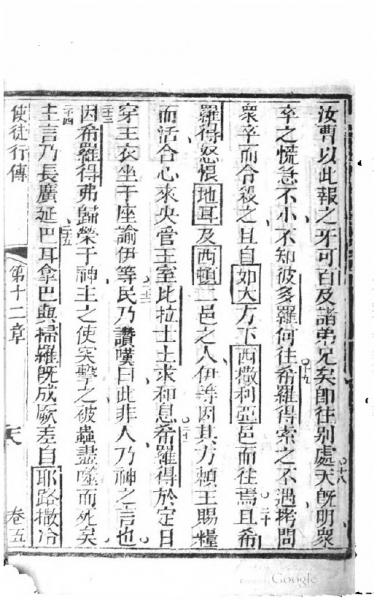 汝曹以此報之牙可百及諸弟兄矣卽往別處天旣明衆
十八
卒之慌急不小不知彼多羅何往希羅得索之不遇拷問
十九
衆卒而令殺之且自如大方下西撒利亞邑而往焉且希
二十
羅得怒恨地耳及西頓二邑之人伊等因其方賴王賜糧
而活合心來央管王室比拉士土求和息希羅得於定日
二一
穿王衣坐于座諭伊等民乃讚嘆曰此非人乃神之言也
二二
因希羅得弗歸榮于神主之使突擊之被蟲盡噬而死矣
二三
主言乃長廣延巴耳拿巴與掃羅旣成厥差自耶路撒冷
二四
二五
使徒行傳
第十二章
卷五
Google